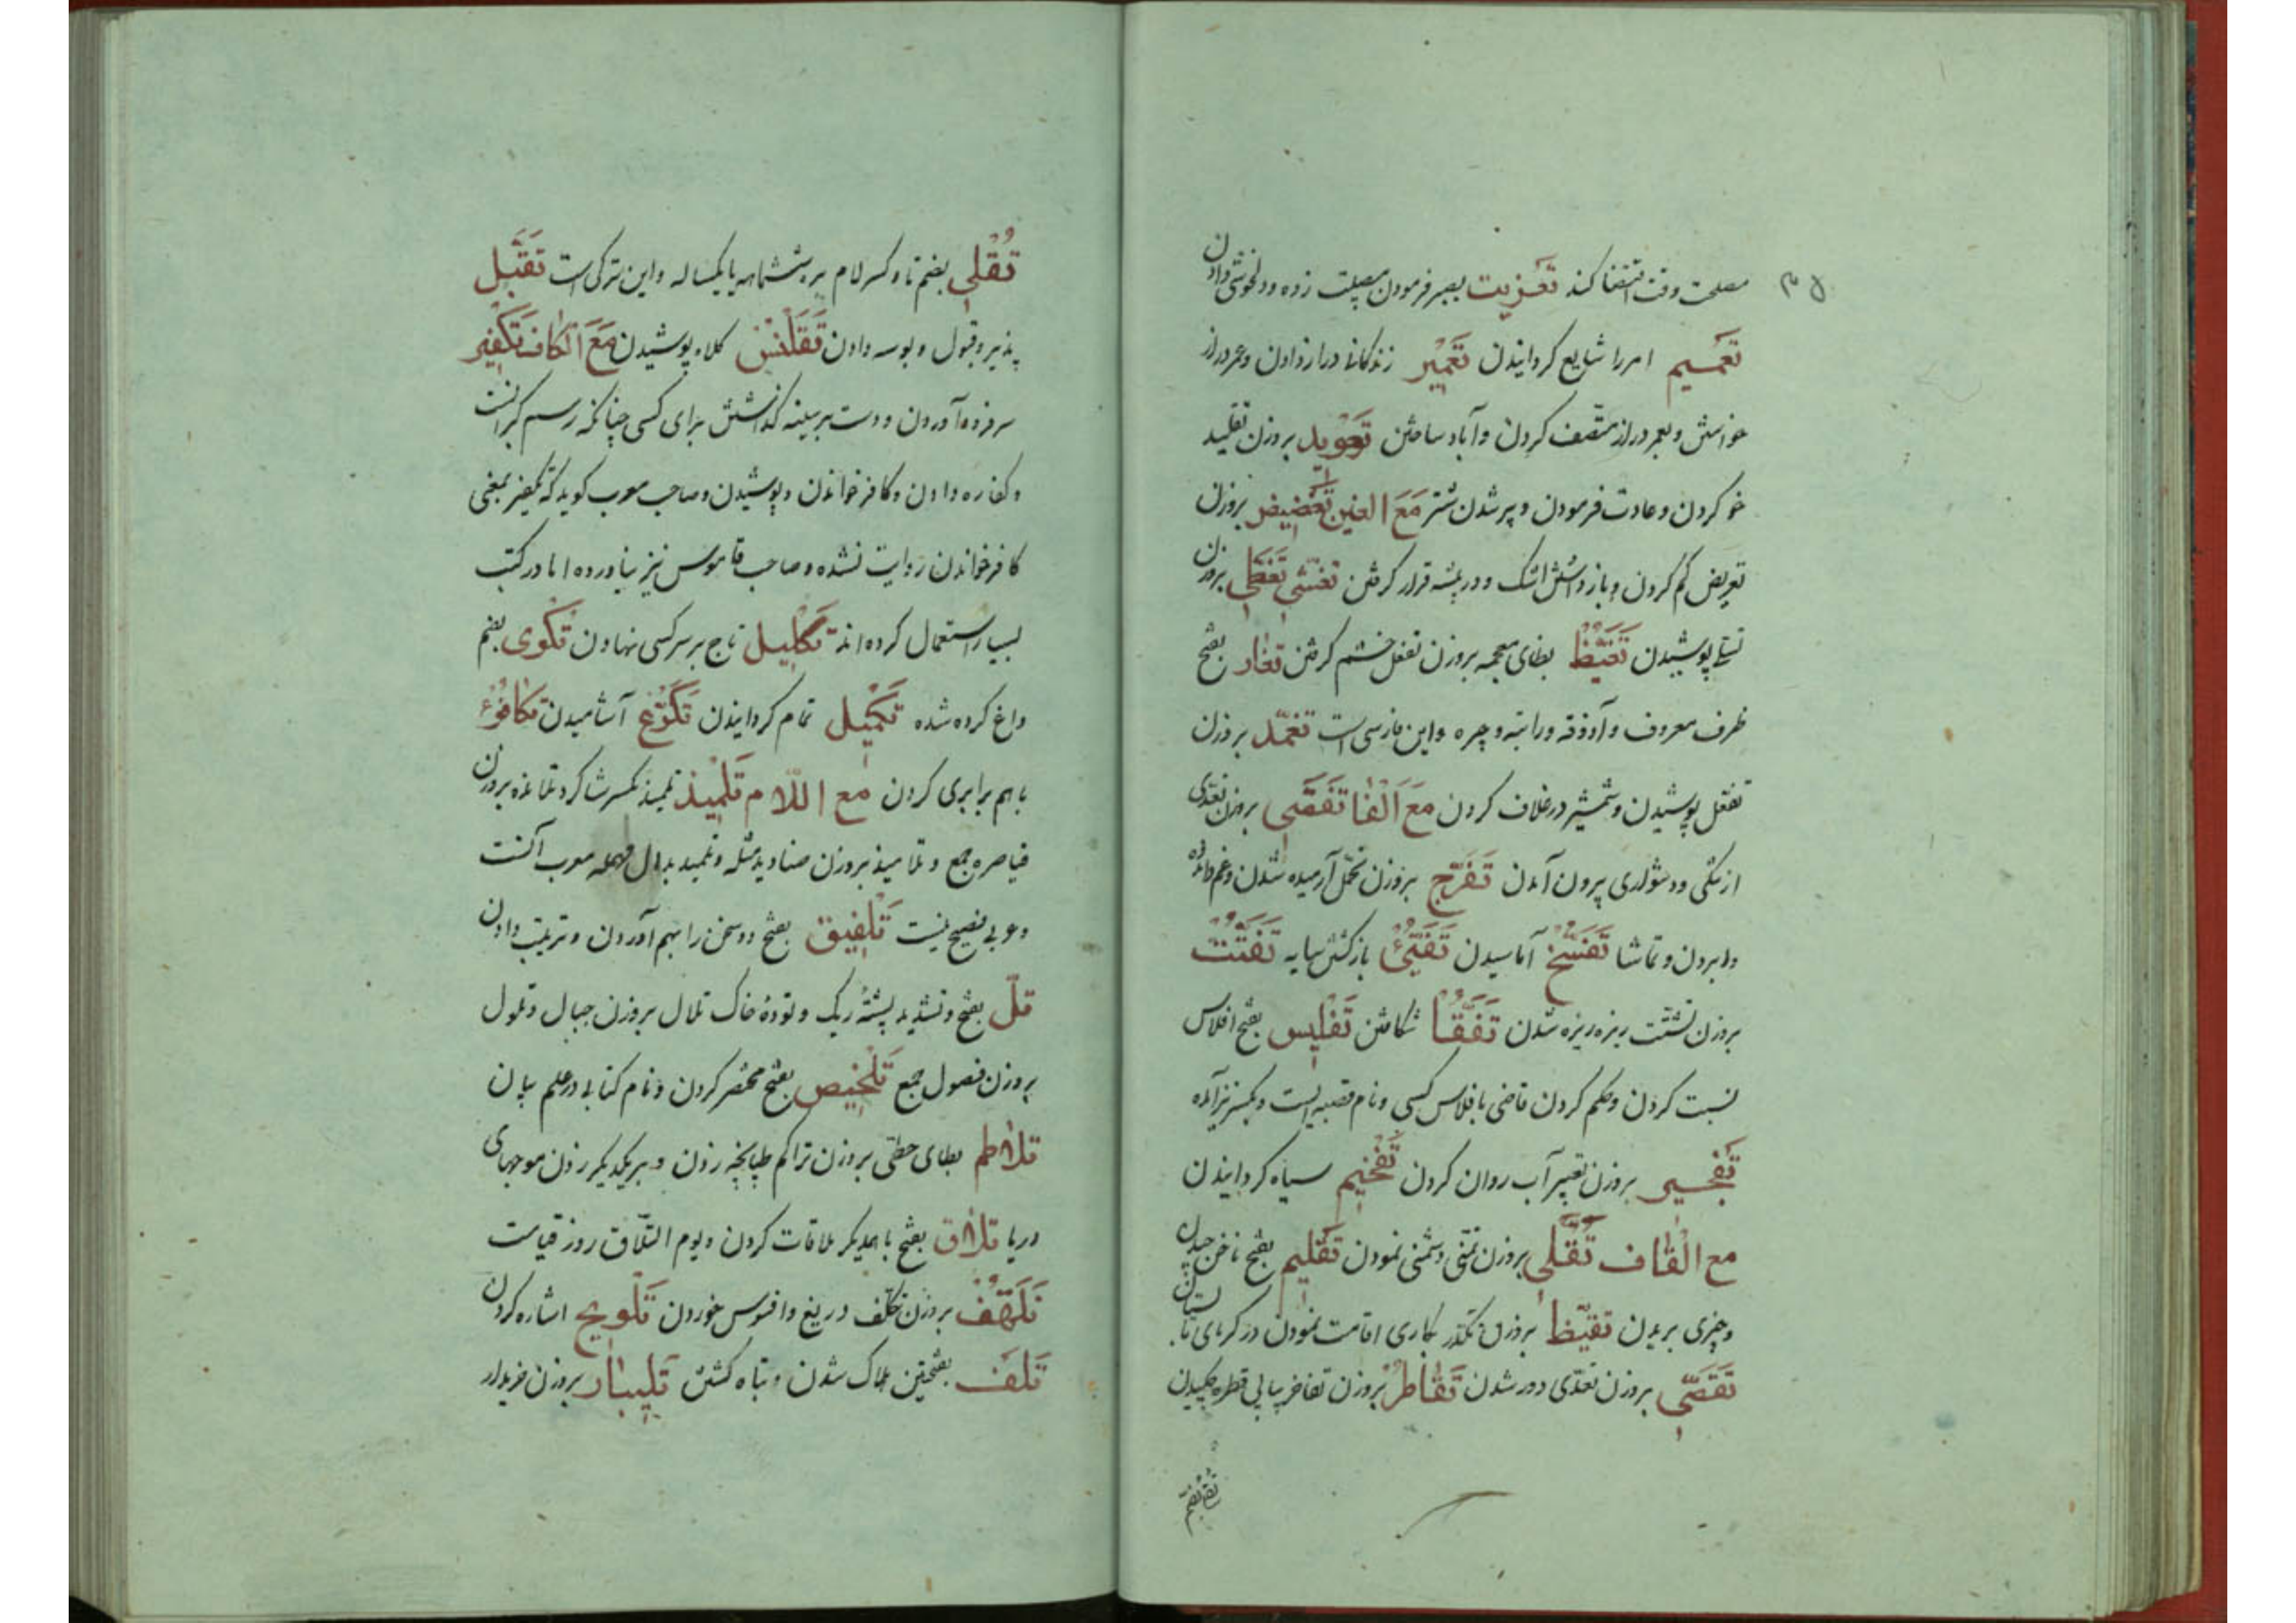 مصلحت وقت اقتضا کند تعزیت بصبر فرمودن مصیبت زده و دلخوشی دادن
تعمیم امر را شایع کردانیدن تعمیر زندکانی دراز دادن و عمر دراز
خواستن و بعمر دراز متصف کردن و آباد ساختن تعوید بروزن تقلید
خو کردن و عادت فرمودن و پیر شدن شتر مَعَ الغین تغضیض بروزن
تعریض کم کردن و باز داشتن اشک و در بیشه قرار کرفتن تغشّی تغطّی بروزن
تسلّی پوشیدن تغیّظ بظای معجمه بروزن تفعل خشم کرفتن تغار بفتح
ظرف معروف و آذوقه و راتبه و جیره و این فارسی است تغمّد بروزن
تفعّل پوشیدن و شمشیر در غلاف کردن مَعَ الْفَا تَفَصّی بروزن تعدّی
از تنکی و دشواری بیرون آمدن تَفَرّج بروزن تحمّل آرمیده شدن و غم
وا بردن و تماشا تَفَسّخ آماسیدن تَفَیّئُ بازکشتن سایه تَفَتّت
بروزن تشتّت ریزه ریزه شدن تَفَقّأ شکافتن تَفلیس بفتح افلاس
نسبت کردن و حکم کردن قاضی بافلاس کسی و نام قصبه ایست و بکسر نیز آمده
تَفْجسیر بروزن تغییر آب روان کردن تَفْخیم سیاه کردانیدن
مع الْقاف تَقَلّی بروزن تمنّی دشمنی نمودن تَقلیم بفتح ناخن چیدن
و چیزی بریدن تقیّظا بروزن تکدّر بجاری اقامت نمودن در کرمای تابستان
تَقَصّی بروزن تعدّی دور شدن تَقاطُر بروزن تفاخر پیاپی قطره چکیدن
تُقْلی بضم تا و کسر لام بره ششماهه یا یکساله و این ترکی است تَقَبّل
پذیر و قبول و بوسه دادن تَقَلْنُس کلاه پوشیدن مَعَ الْکاف تَکْفیر
سر فرود آوردن و دست بر سینه کذاشتن برای کسی چنانکه رسم کبرانست
و کفاره دادن و کافر خواندن و پوشیدن و صاحب معرب کوید که تکفیر بمعنی
کافر خواندن روایت نشده و صاحب قاموس نیز نیاورده اما در کتب
بسیار استعمال کرده اند تَکْلیل تاج بر سر کسی نهادن تَکْوی بضم
داغ کرده شده تَکْمیل تمام کردانیدن تَکَرّع آشامیدن تکافُوء
با هم برابری کردن مع اللّام تَلْمیذ تلمیذ بکسر شاکرد تلامذه بروزن
قیاصره جمع و تلامیذ بروزن صنادید مثله و تلمید بدال مهمله معرب آکنست
و عربی فصیح نیست تَلْفیق بفتح دو سخن را بهم آوردن و ترتیب دادن
تلّ بفتح و تشدید پشتهٔ ریک و تودهٔ خاک تلال بروزن جبال و تلول
بروزن فصول جمع تَلْخیص بفتح مختصر کردن و نام کتابی در علم بیان
تلاطم بطای حطّی بروزن تراکم طپانچه زدن و بر یکدیکر زدن موجهای
دریا تلاق بفتح با همدیکر ملاقات کردن و یوم التلاق روز قیامت
تَلَهُّف بروزن تخلّف دریغ و افسوس خوردن تَلْویح اشاره کردن
تَلَف بفتحتین هلاک شدن و تباه کشتن تَلیبار بروزن خریدار